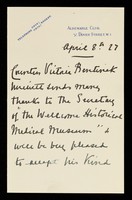 ALEXANDRA CLUB
12, GROSVENOR STREET, W.1
April 8th 27
Countess Victoria Bentinck
sends many
thanks to the Secretary
of "the Wellcome Historical
Medical Museum" &
will be very pleased
to accept his kind